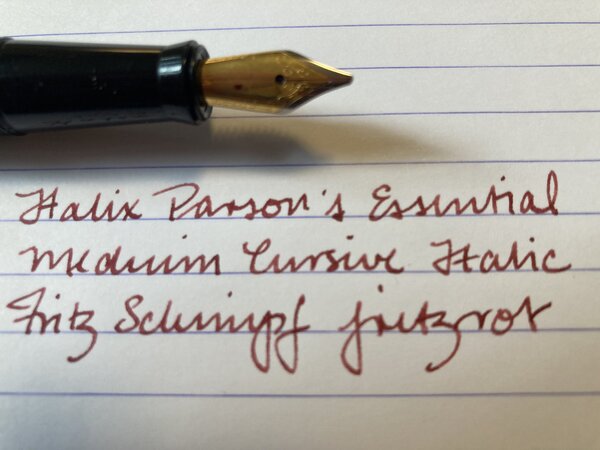 Italix Parson's Essential
Medium Cursive Italic
Fritz Schimpf fritzrot